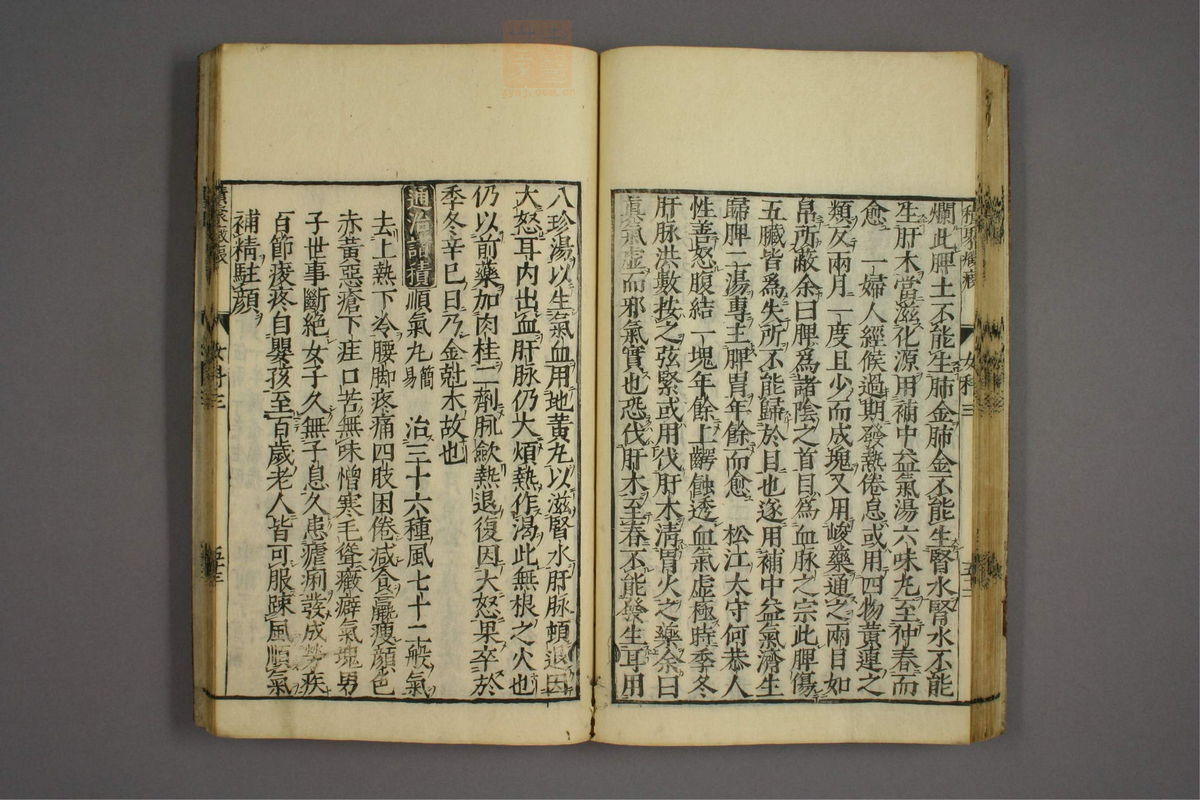 爛此脾土不能生肺金肺金不能生腎水腎水不能
生肝木當滋化源用補中益氣湯六味丸至仲春而
愈 一婦人經候過期發熱倦怠或用四物黃連之
類反兩月一度且少而成塊又用峻藥通之兩目如
帛所蔽余曰脾為諸陰之首目為血脉之宗此脾傷
五臟皆為失所不能歸於目也遂用補中益氣濟生
歸脾二湯專主脾胃年餘而愈 松江太守何恭人
性善怒腹結一塊年餘上齶蝕透血氣虛極時季冬
肝脉洪數按之弦緊或用伐肝木清胃火之藥余曰
真氣虛而邪氣實也恐伐肝木至春不能發生耳用
女科三
八珍湯以生氣血用地黃丸以滋腎水肝脉頓退因
大怒耳內出血肝脉仍大煩熱作渴此無根之火也
仍以前藥加肉桂二劑脉歛熱退復因大怒果卒於
季冬辛巳日乃金尅木故也
通治諸積 順氣丸 簡易 治三十六種風七十二般氣
去上熱下冷腰脚疼痛四肢困倦減食羸瘦顏色
赤黃惡瘡下疰口苦無味憎寒毛聳癥癖氣塊男
子世事斷絕女子久無子息久患瘧痢發成勞疾
百節痠疼自嬰孩至百歲老人皆可服踈風順氣
補精駐顏
女科三